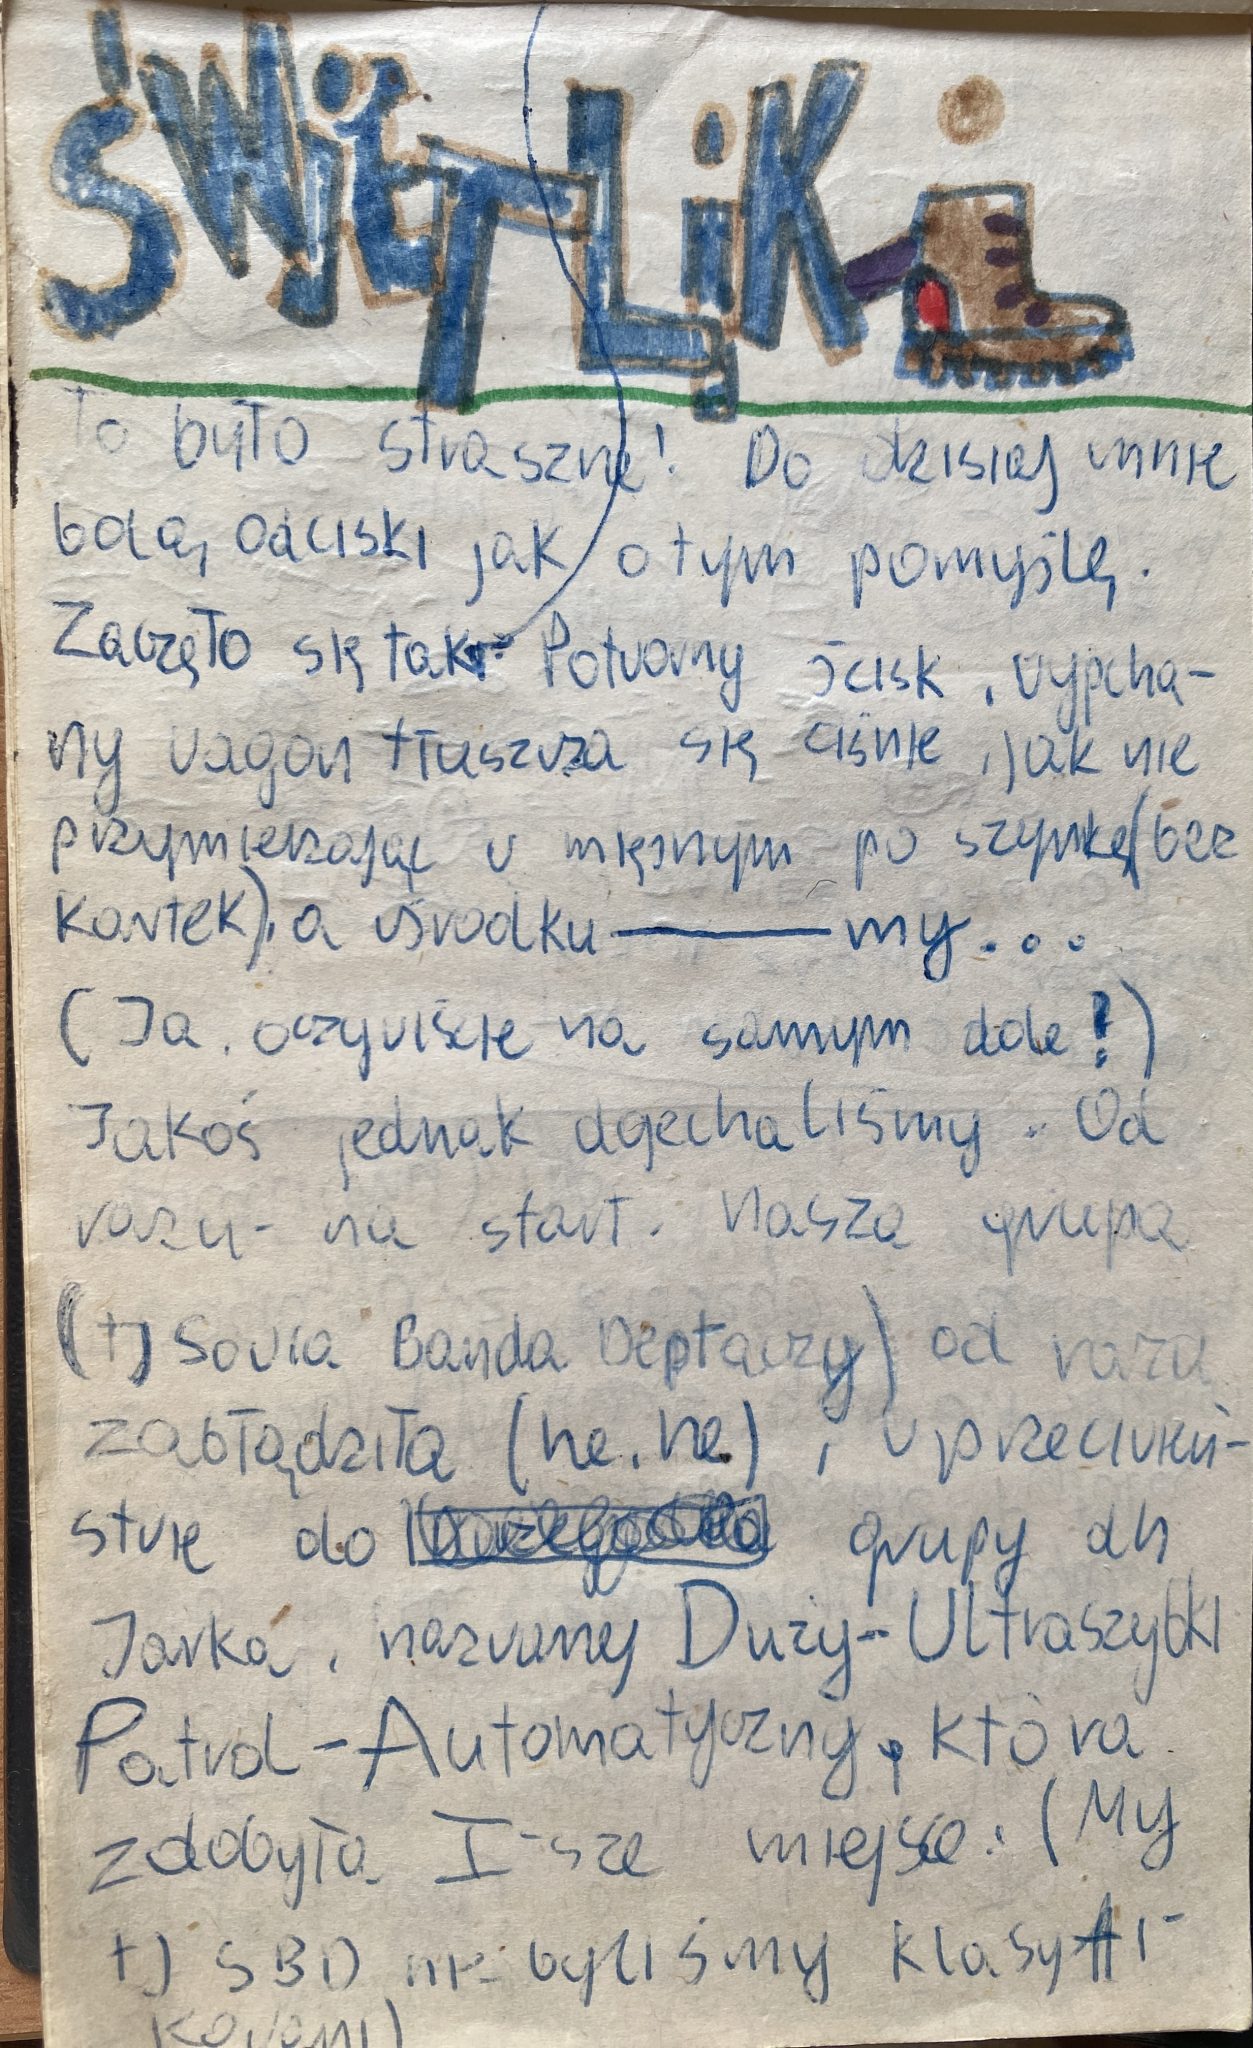 ŚWIĘTLIK
To było straszne! Do dzisiaj mnie
bolą odciski jak o tym pomyślę.
Zaczęło się tak: Potworny ścisk, wypcha-
ny wagon tłuszcza się ciśnie, jak nie
przymierzając w mięsnym po szynkę (bez
kartek), a wśrodku — my...
(Ja, oczywiście na samym dole!)
Jakoś jednak dojechaliśmy. Od
razu - na start. Nasza grupa
(+) Sowia Banda Deptaczy) od razu
zabłądziła (he, he), w przeciwień-
stwie do grupy dh
Jarka, nazwanej Duży-Ultraszybki
Patrol-Automatyczny, która
zdobyła I-sze miejsce. (My
+) SBD nie byliśmy klasyfi-
kowani)